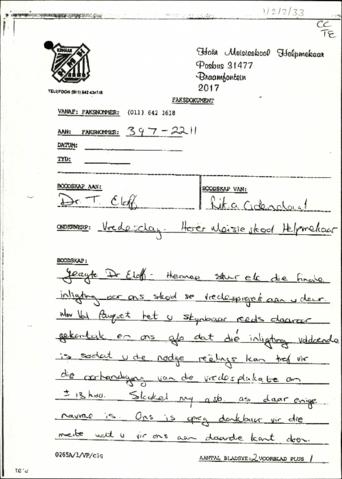 1/2/7/33
CC
TE
Hoër Meisieskool Helpmekaar
Posbus 31477
Braamfontein
2017
TELEFOON (011) 642
FAKSDOKUMENT
VANAF: FAKSNOMMER: (011) 642 1618
AAN: FAKSNOMMER: 397-2211
DATUM:
TYD:
BOODSKAP AAN:
Dr T. Eloff
BOODSKAP VAN:
Rita
ONDERWERP: Vredesdag. Hoër Meisieskool Helpmekaar
BOODSKAP:
Geagte Dr Eloff. Hiermee stuur ek die finale
inligting oor ons skool se vredesprojek aan u deur.
Mnr Val Pauquet het u skynbaar reeds daaroor
geskakel en ons glo dat dié inligting voldoende
is sodat u die nodige reëlings kan tref vir
die oorhandiging van die vredesplakate om
± 13h00. Skakel my asb. as daar enige
navrae is. Ons is opreg dankbaar vir die
moeite wat u vir ons aan daardie kant doen.
0265A/1/VP/cis
AANTAL BLADSYE: 2 VOORBLAD PLUS 1